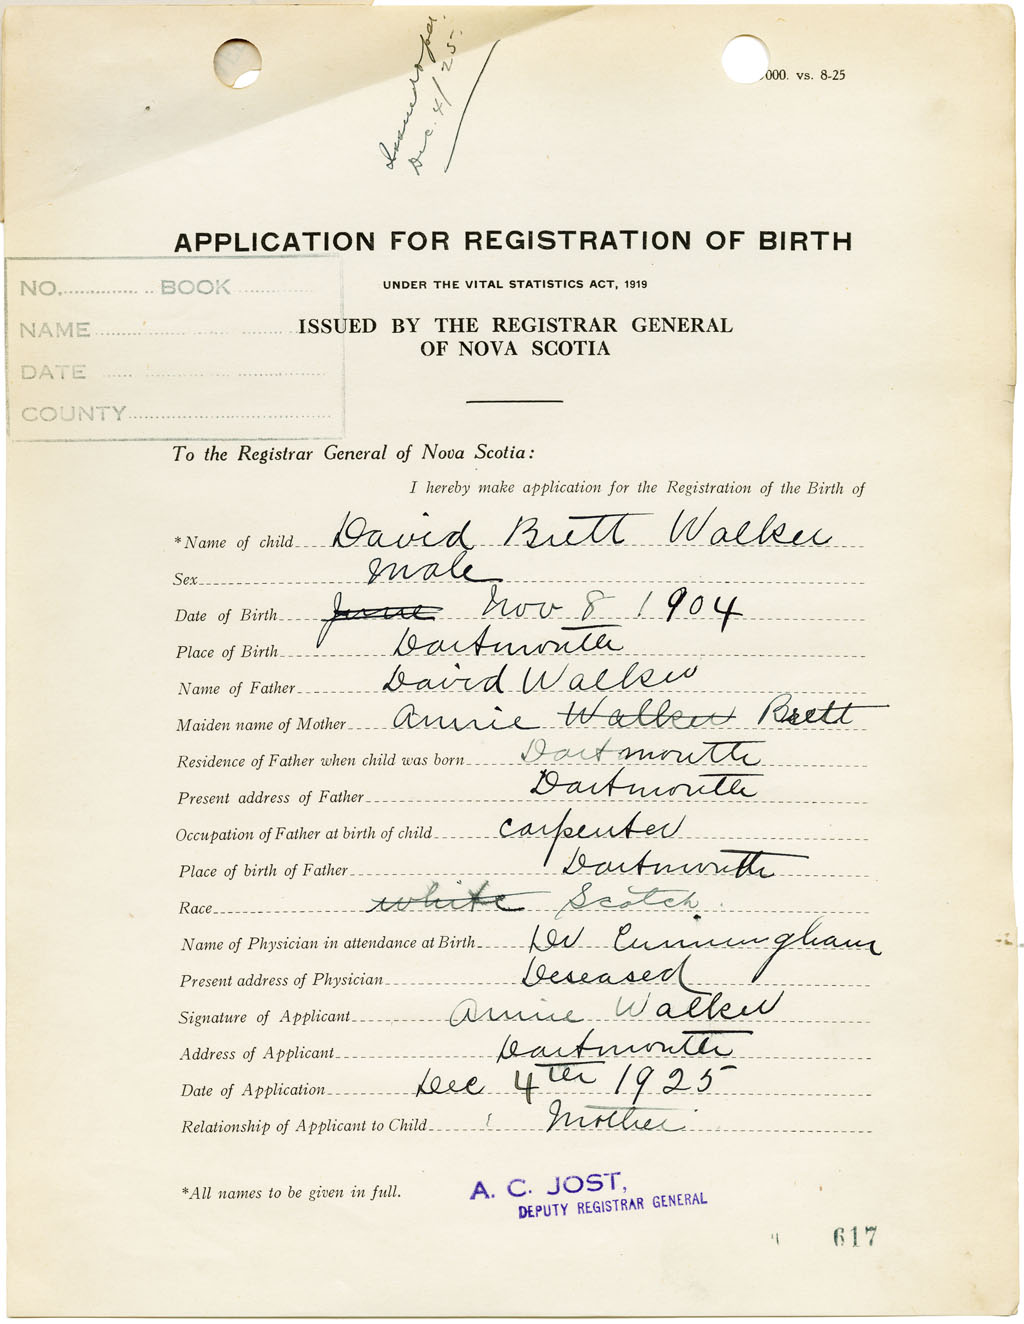 Dec. 4/25.
000. vs. 8-25
APPLICATION FOR REGISTRATION OF BIRTH
UNDER THE VITAL STATISTICS ACT, 1919
ISSUED BY THE REGISTRAR GENERAL
OF NOVA SCOTIA
NO. BOOK
NAME
DATE
COUNTY
To the Registrar General of Nova Scotia:
I hereby make application for the Registration of the Birth of
*Name of child David Brett Walker
Sex Male
Date of Birth June Nov 8 1904
Place of Birth Dartmouth
Name of Father David Walker
Maiden name of Mother Annie Walker Brett
Residence of Father when child was born Dartmouth
Present address of Father Dartmouth
Occupation of Father at birth of child carpenter
Place of birth of Father Dartmouth
Race white Scotch.
Name of Physician in attendance at Birth Dr Cunningham
Present address of Physician Deseased
Signature of Applicant Annie Walker
Address of Applicant Dartmouth
Date of Application Dec 4th 1925
Relationship of Applicant to Child Mother
*All names to be given in full.
A. C. JOST,
DEPUTY REGISTRAR GENERAL
617